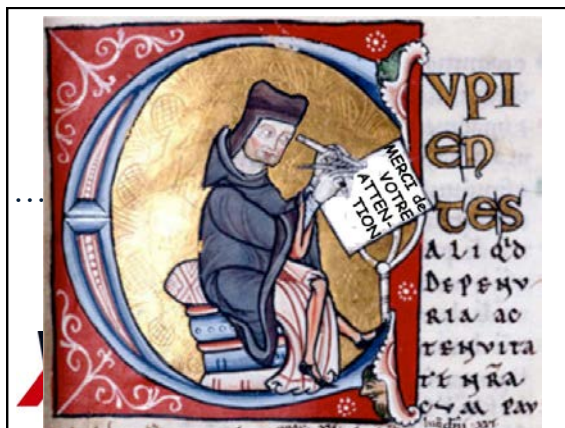 MERCI de
VOTRE
ATTEN-
TION
CVPI
EN
TES
ALIQ'D
DEPENV
RIA AC
TENVITA
TE NR̄A
CVM PAV